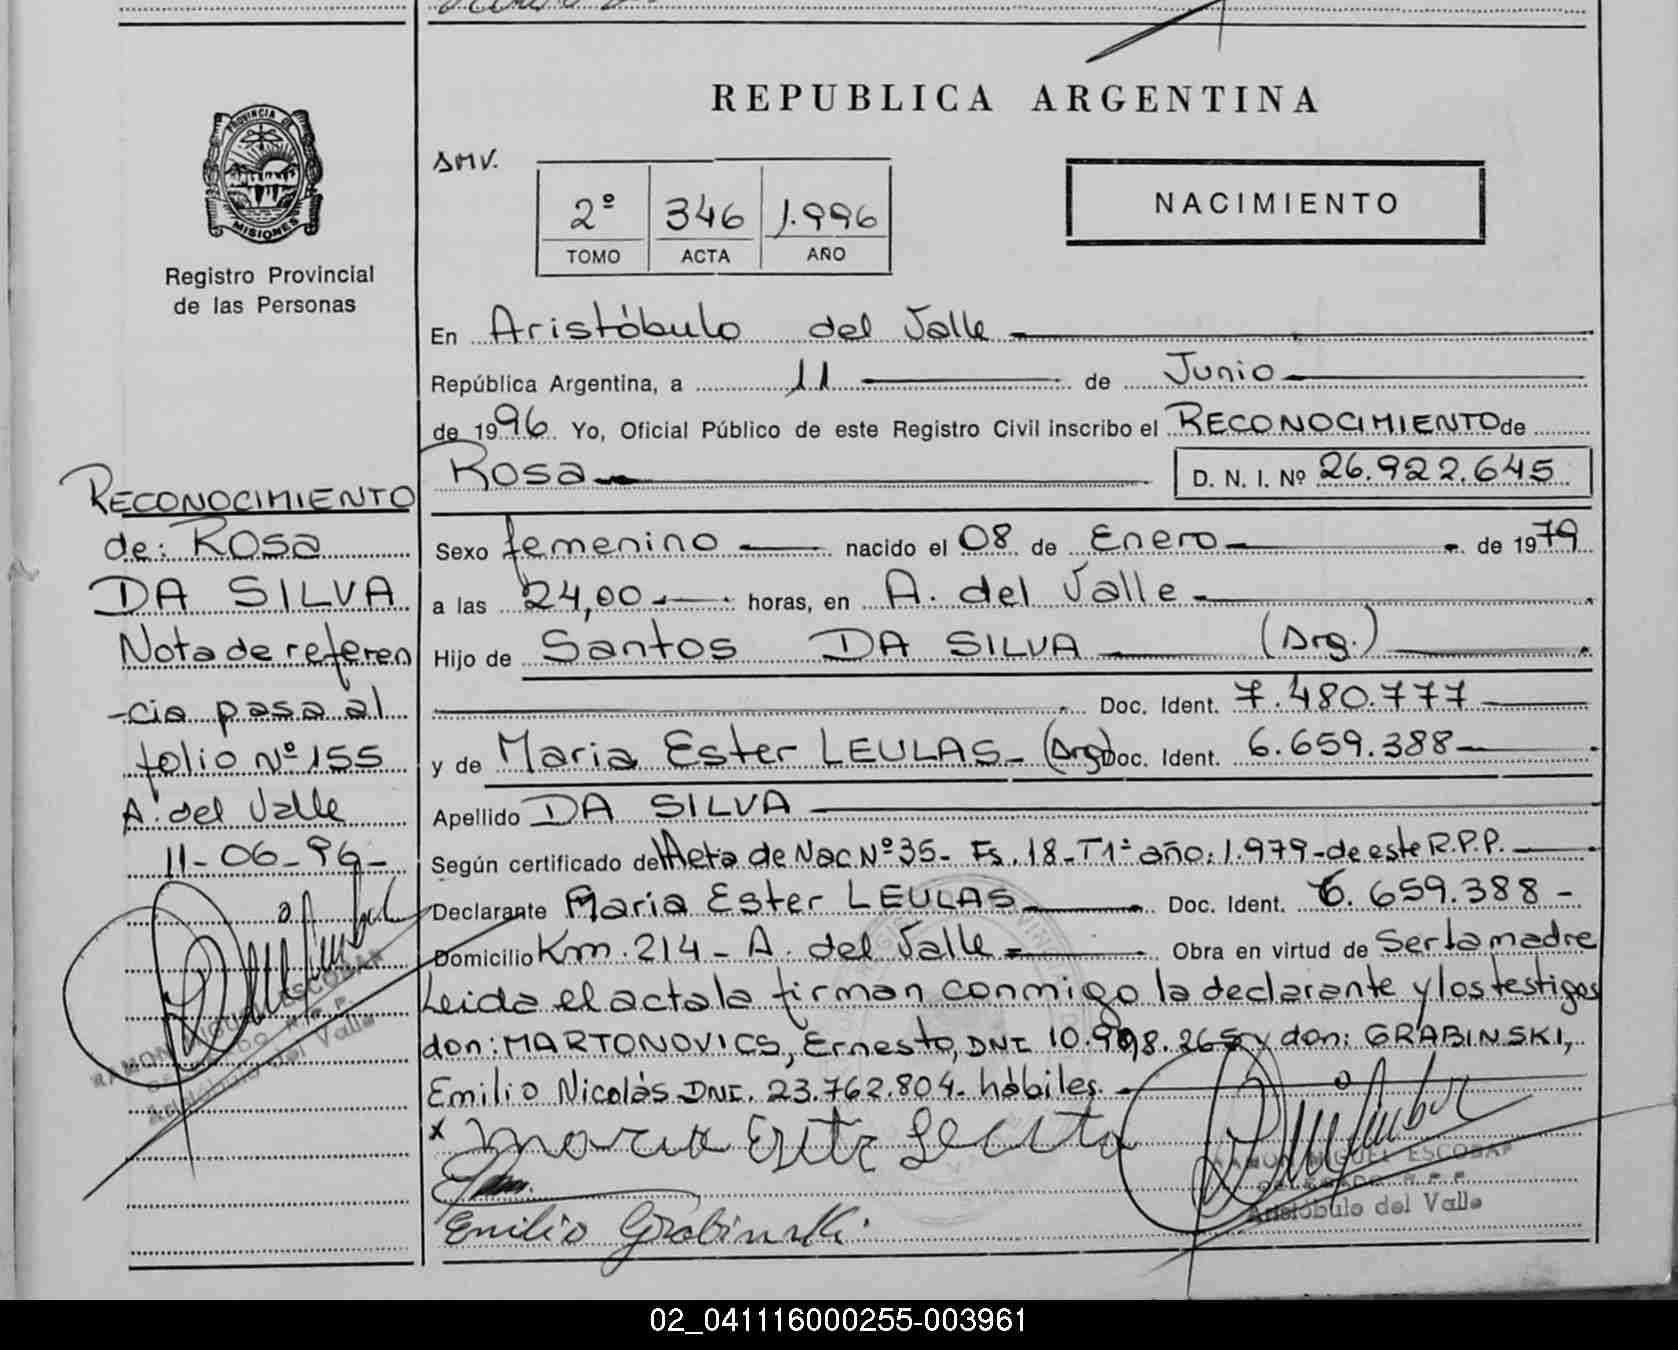 REPUBLICA ARGENTINA
PROVINCIA DE
MISIONES
Registro Provincial
de las Personas
SMV.
2º 346 1.996
TOMO ACTA AÑO
NACIMIENTO
En Aristóbulo del Valle
República Argentina, a 11 de Junio
de 1996. Yo, Oficial Público de este Registro Civil inscribo el RECONOCIMIENTO de
Rosa D. N. I. Nº 26.922.645
Sexo femenino nacido el 08 de Enero de 1979
a las 24,00 horas, en A. del Valle
Hijo de Santos DA SILVA (Arg.)
Doc. Ident. 7.480.777
y de Maria Ester LEULAS (Arg) Doc. Ident. 6.659.388
Apellido DA SILVA
Según certificado de Acta de Nac Nº 35- Fs. 18-T1º año: 1.979-de este R.P.P.
Declarante Maria Ester LEULAS Doc. Ident. 6. 659.388-
Domicilio Km. 214- A. del Valle Obra en virtud de Ser la madre
Leida el acta la firman conmigo la declarante y los testigos
don: MARTONOVICS, Ernesto, DNI 10.998.265 y don: GRABINSKI,
Emilio Nicolás DNI. 23.762.804. hábiles.
x
Emilio Grabinski.
RAMON MIGUEL ESCOBAR
DELEGADO R.P.P.
Aristóbulo del Valle
RECONOCIMIENTO
de: ROSA
DA SILVA
Nota de referen
-cia pasa al
folio Nº 155
A. del Valle
11-06-96-
RAMON MIGUEL ESCOBAR
DELEGADO R.P.P.
Aristóbulo del Valle
02_041116000255-003961